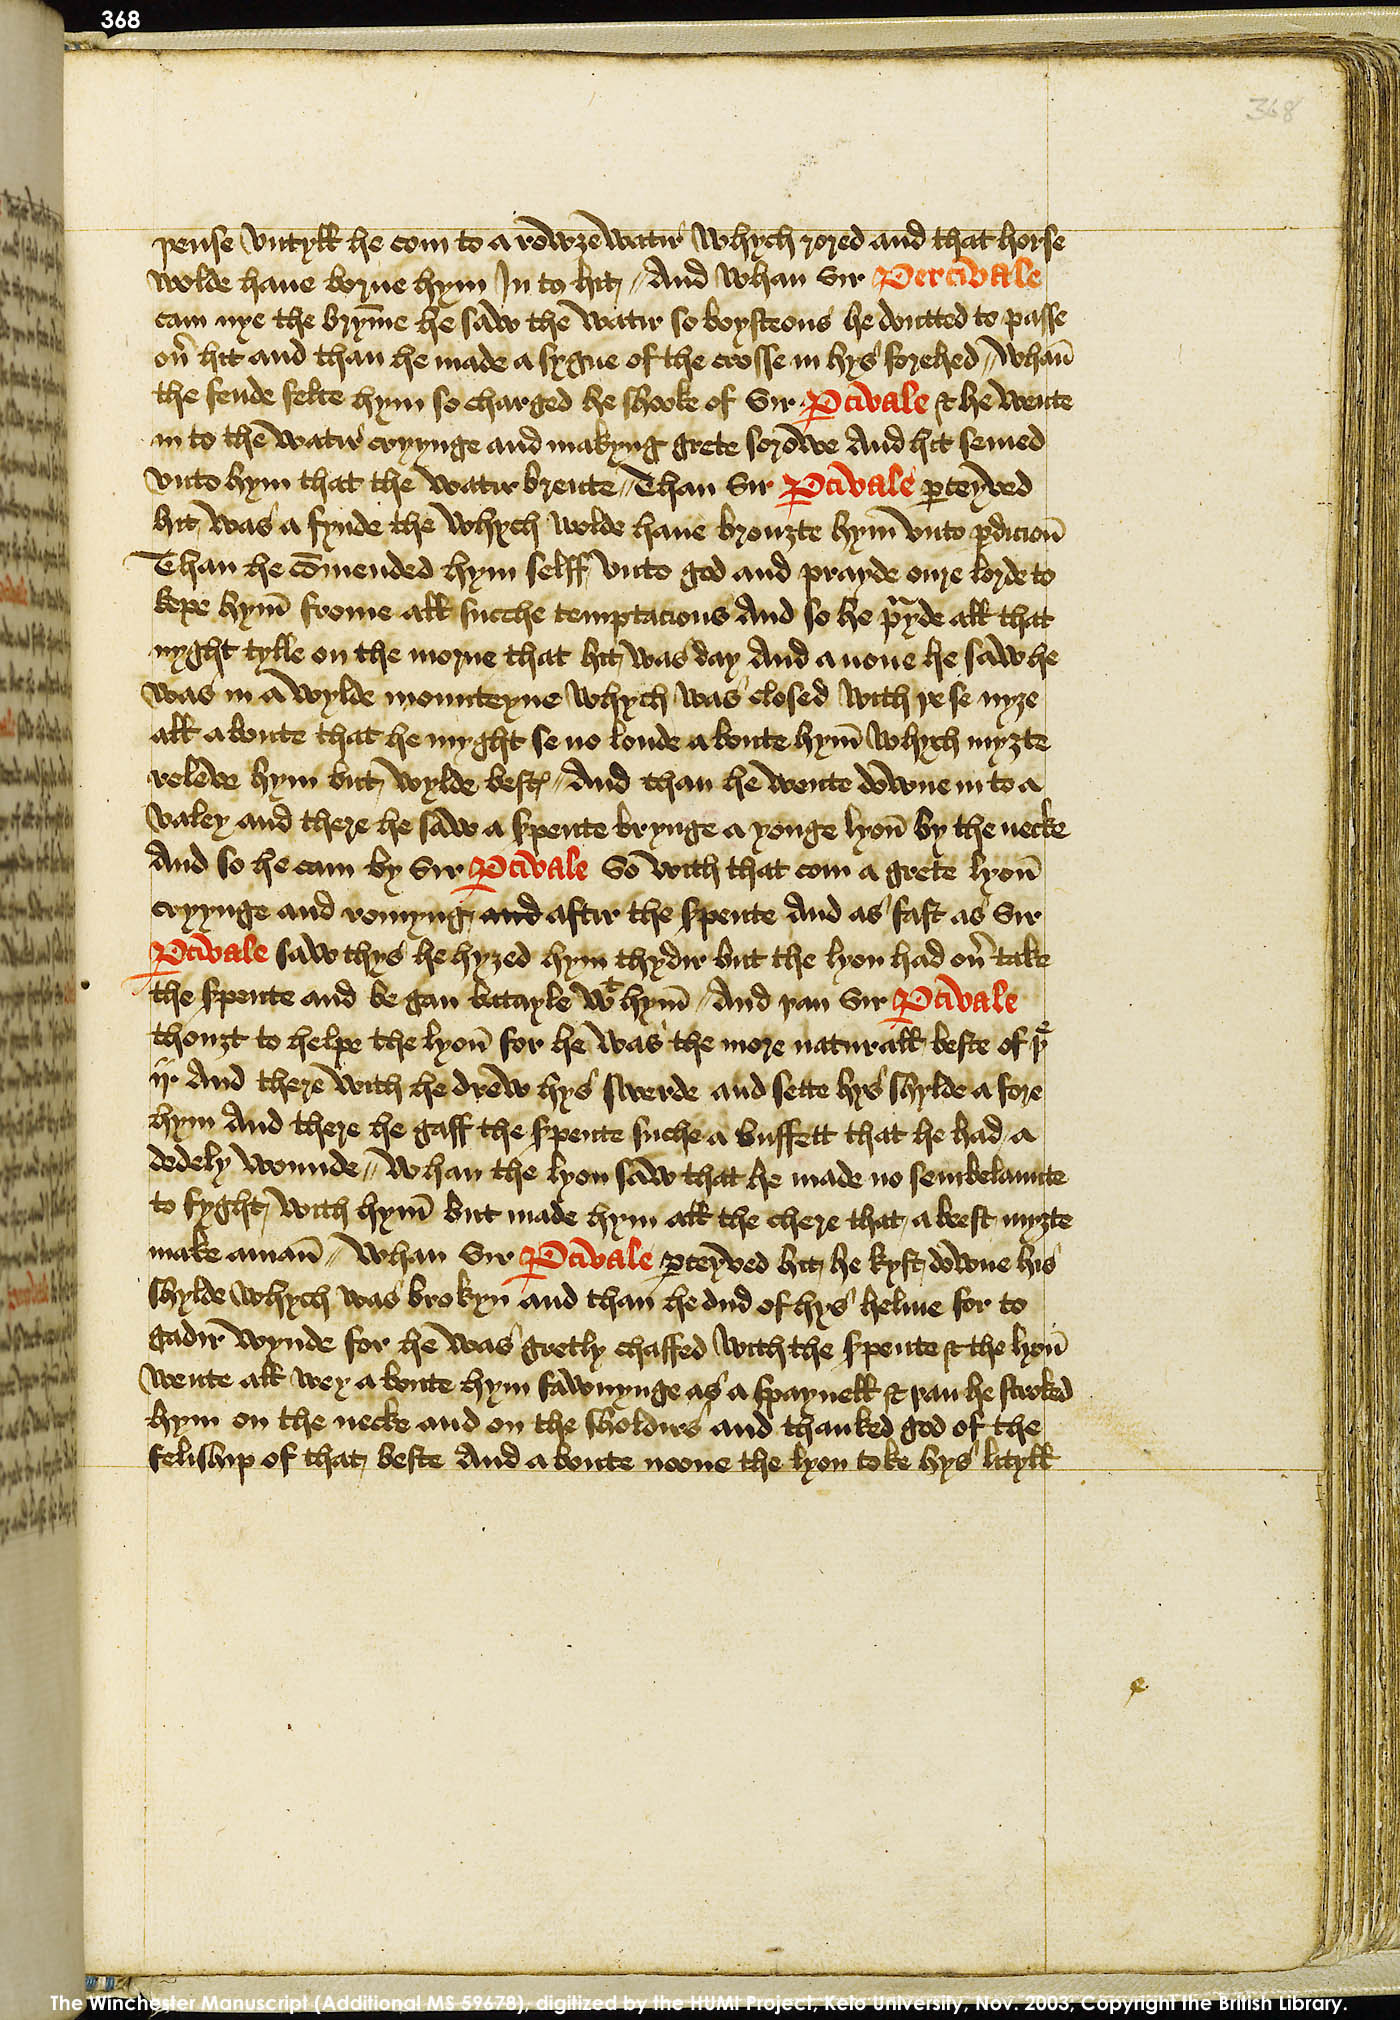 368
368
þense vntyll he com to a rowȝe watir whych rored and that horse
wolde haue borne hym In to hit // And whan Sir Percivale
cam nye the brym̄e he saw the watir so boysteous he doutted to passe
ou̾ hit and than he made a sygne of the crosse in hys forehed // whan̄
the fende felte hym so charged he shooke of Sir P̱civale & he wente
in to the watir cryynge and makyng grete sorowe And hit semed
vnto hym that the watir brente // Than Sir P̱civale ꝑceyved
hit was a fynde the whych wolde haue brouȝte hym̄ vnto ꝑdicion̄
Than he cōmended hym selff vnto god and prayde oure lorde to
kepe hym̄ frome all sucche temptacions And so he pͣyde all that
nyght tylle on the morne that hit was day And anone he saw he
was in a wylde mounteyne whych was closed with þe se nyȝe
all a boute that he myght se no londe a boute hym̄ whych myȝte
releve hym but wylde bestꝭ // And than he wente downe in to a
valey and there he saw a sꝑente brynge a yonge lyon̄ by the necke
And so he cam by Sir P̱civale So with that com a grete lyon̄
cryynge and romyng and aftir the sꝑente And as fast as Sir
P̱civale saw thys he hyȝed hym thydir but the lyon had ou̾ take
the sꝑente and be gan batayle wᵗ hym̄ // And þan Sir P̱civale
thouȝt to helpe the lyon̄ for he was the more naturall beste of þᵉ
ij. And there with he drew hys swerde and sette hys shylde a fore
hym And there he gaff the sꝑente suche a buffett that he had a
dedely wounde // Whan the lyon saw that he made no sembelaunte
to fyght with hym̄ but made hym all the chere that a beest myȝte
make a man̄ // Whan Sir P̱civale ꝑceyved hit he kyst downe his
shylde whych was brokyn and than he dud of hys helme for to
gadir wynde for he was gretly chaffed with the sꝑente & the lyon̄
wente all wey a boute hym fawnynge as a spaynell & þan he stroked
hym on the necke and on the sholdirs and thanked god of the
feliship of that beste And a boute noone the lyon toke hys lityll
The Winchester Manuscript (Additional MS 59678), digitized by the HUMI Project, Keio University, Nov. 2003, Copyright the British Library.